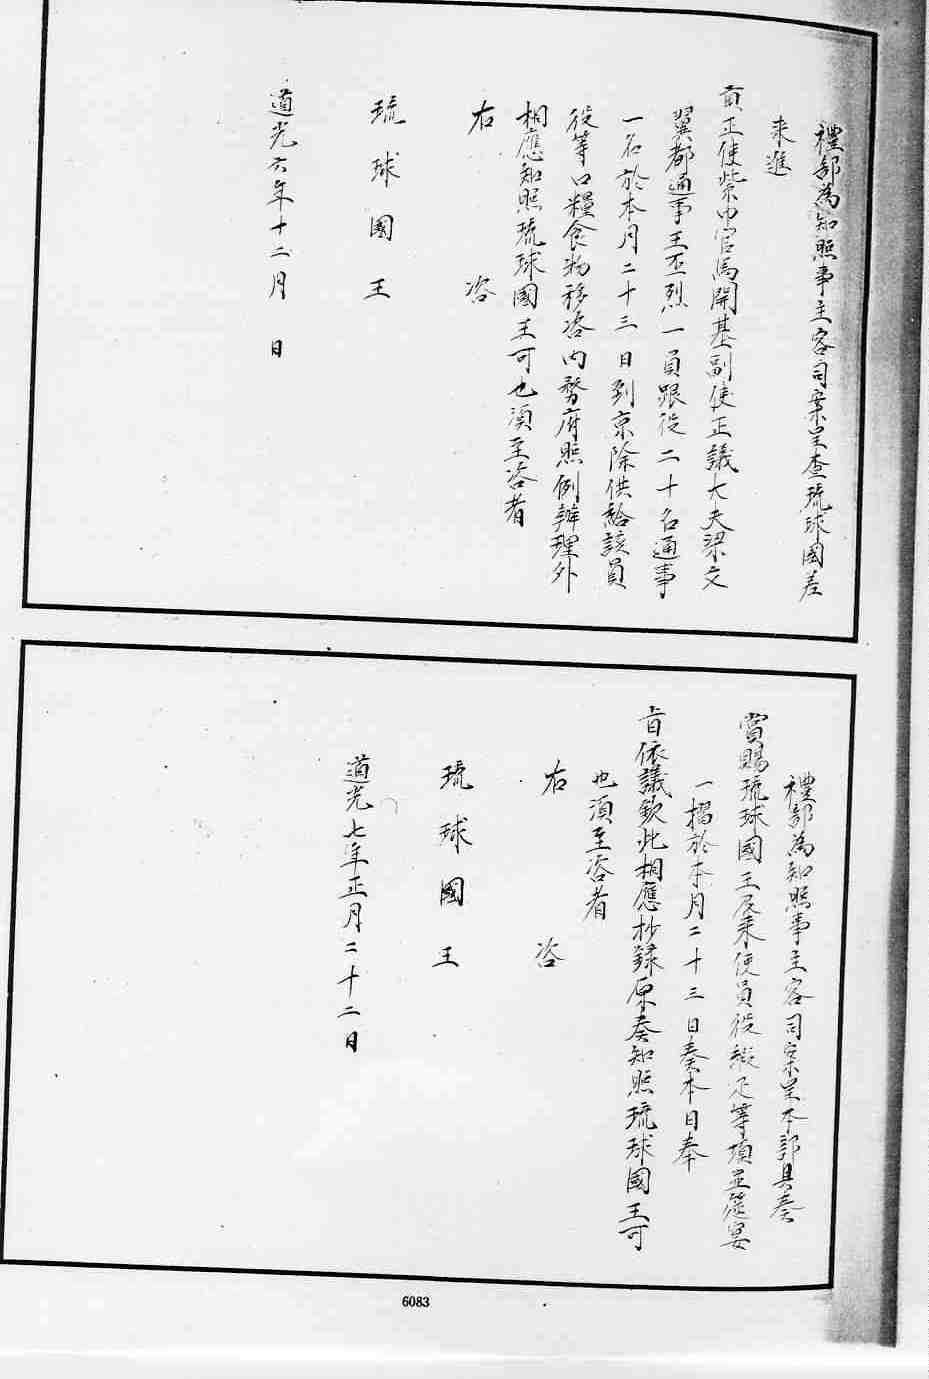 禮部為知照事主客司案呈查琉球國差
来進
貢正使紫巾官馬開基副使正議大夫梁文
翼都通事王丕烈一員跟役二十名通事
一名於本月二十三日到京除供給該員
役等口糧食物移咨内務府照例辦理外
相應知照琉球國王可也須至咨者
右咨
琉球國王
道光六年十二月 日
禮部為知照事主客司案呈本部具奏
賞賜琉球國王及来使員役緞疋等項並筵宴
一摺於本月二十三日奏本日奉
旨依議欽此相應抄録原奏知照琉球國王可
也須至咨者
右咨
琉球國王
道光七年正月二十二日
6083